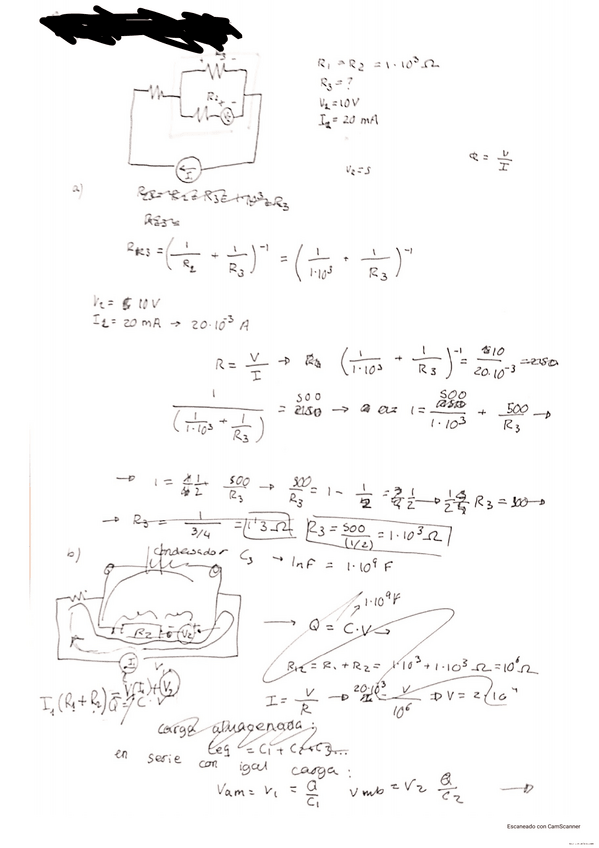 R₁ = R₂ = 1·10³ Ω
R₃ = ?
V₂ = 10V
I₁ = 20 mA
V₂ = 5
R = V/I
R₂
I₁
a)
= (1/R₂ + 1/R₃)⁻¹ = (1/1·10³ + 1/R₃)⁻¹
V₂ = 10V
I₁ = 20 mA → 20·10⁻³ A
R = V/I → (1/1·10³ + 1/R₃)⁻¹ = 10/20·10⁻³
1/(1/1·10³ + 1/R₃) = 500 → 1 = 500/1·10³ + 500/R₃ →
→ 1 = 1/2 + 500/R₃ → 500/R₃ = 1 - 1/2 = 1/2 → 1/2 R₃ = 500 →
→ R₃ = 1/(3/4) = 1'3 Ω R₃ = 500/(1/2) = 1·10³ Ω
b) condensador C₃ → 1nF = 1·10⁹ F
R₂ V₂
→ Q = C·V → 1·10⁹F
R₁₂ = R₁ + R₂ = 1·10³ + 1·10³ Ω = 10⁶ Ω
I₁
I = V/R → 20·10³ = V/10⁶ → V = 2·10⁴
V(I₁) + V₂
I₁(R₁ + R₂) Q = C·V
carga almacenada:
Ceq = C₁ + C₂ + C₃...
en serie con igal carga:
Vam = V₁ = Q/C₁ Vmb = V₂ Q/C₂ →
Escaneado con CamScanner